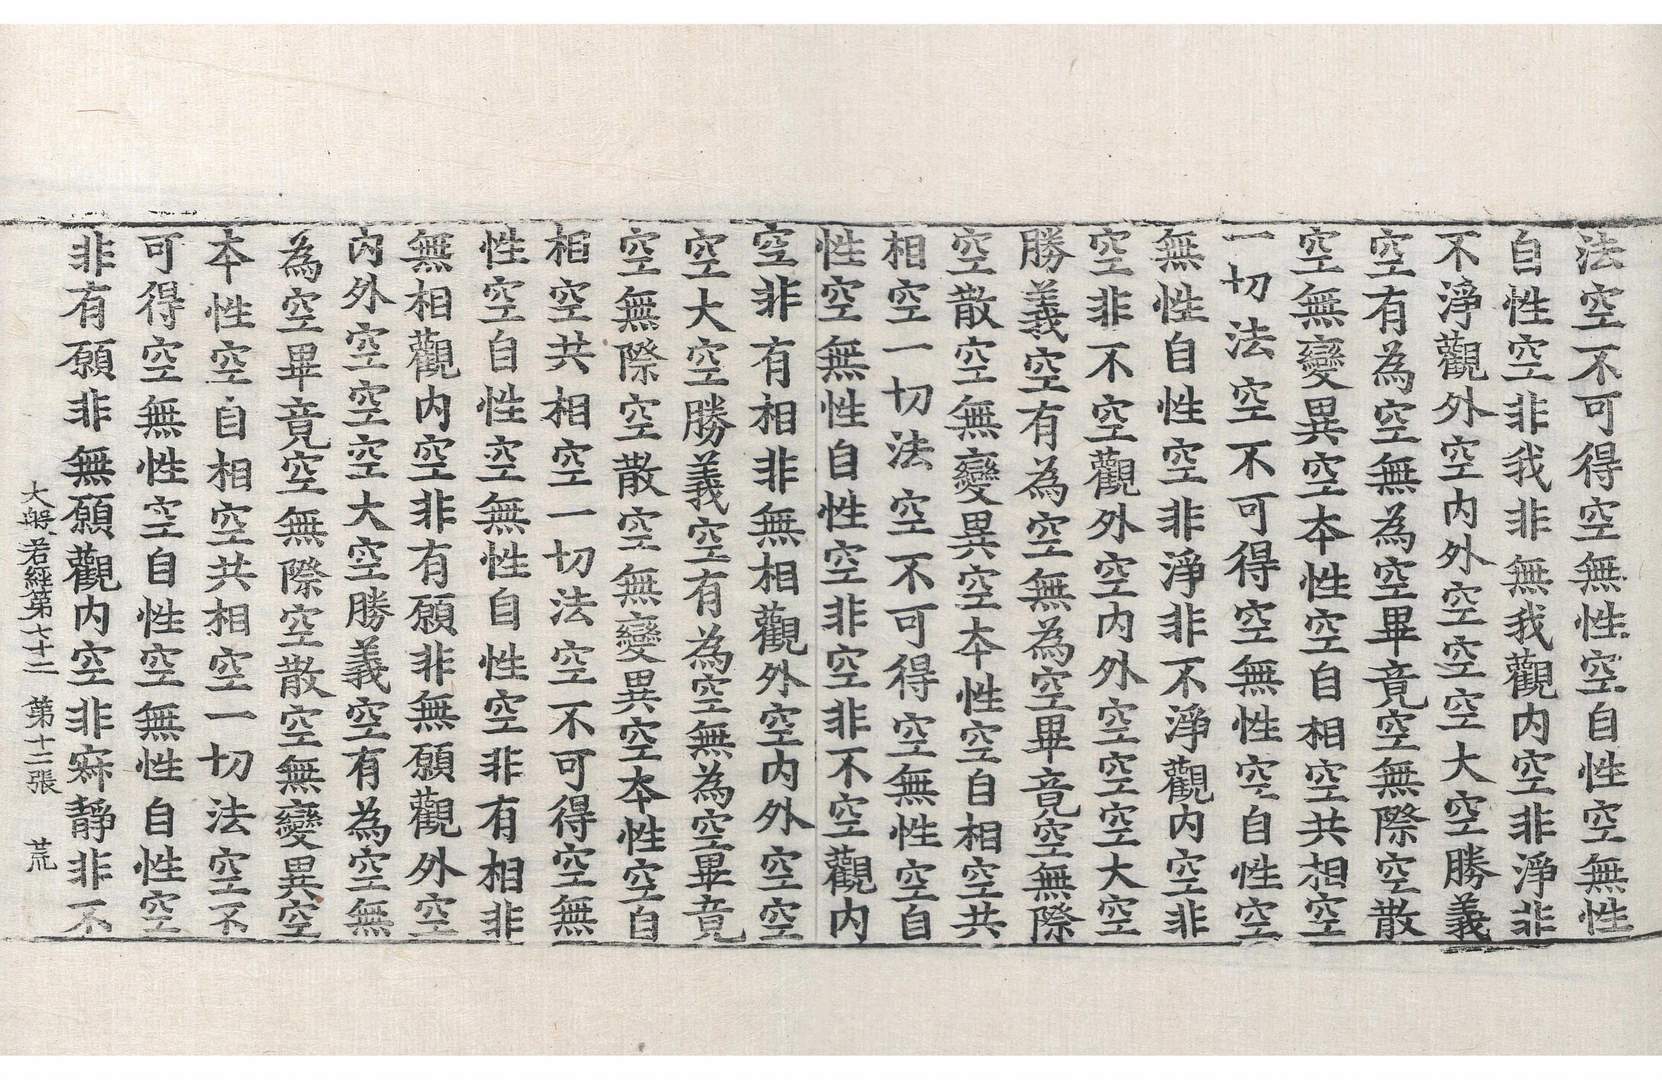 法空不可得空無性空自性空無性
自性空非我非無我觀内空非淨非
不淨觀外空内外空空空大空勝義
空有為空無為空畢竟空無際空散
空無變異空本性空自相空共相空
一切法空不可得空無性空自性空
無性自性空非淨非不淨觀内空非
空非不空觀外空内外空空空大空
勝義空有為空無為空畢竟空無際
空散空無變異空本性空自相空共
相空一切法空不可得空無性空自
性空無性自性空非空非不空觀内
空非有相非無相觀外空内外空空
空大空勝義空有為空無為空畢竟
空無際空散空無變異空本性空自
相空共相空一切法空不可得空無
性空自性空無性自性空非有相非
無相觀内空非有願非無願觀外空
内外空空空大空勝義空有為空無
為空畢竟空無際空散空無變異空
本性空自相空共相空一切法空不
可得空無性空自性空無性自性空
非有願非無願觀内空非寂靜非不
大般若經第七十二 第十二張 荒